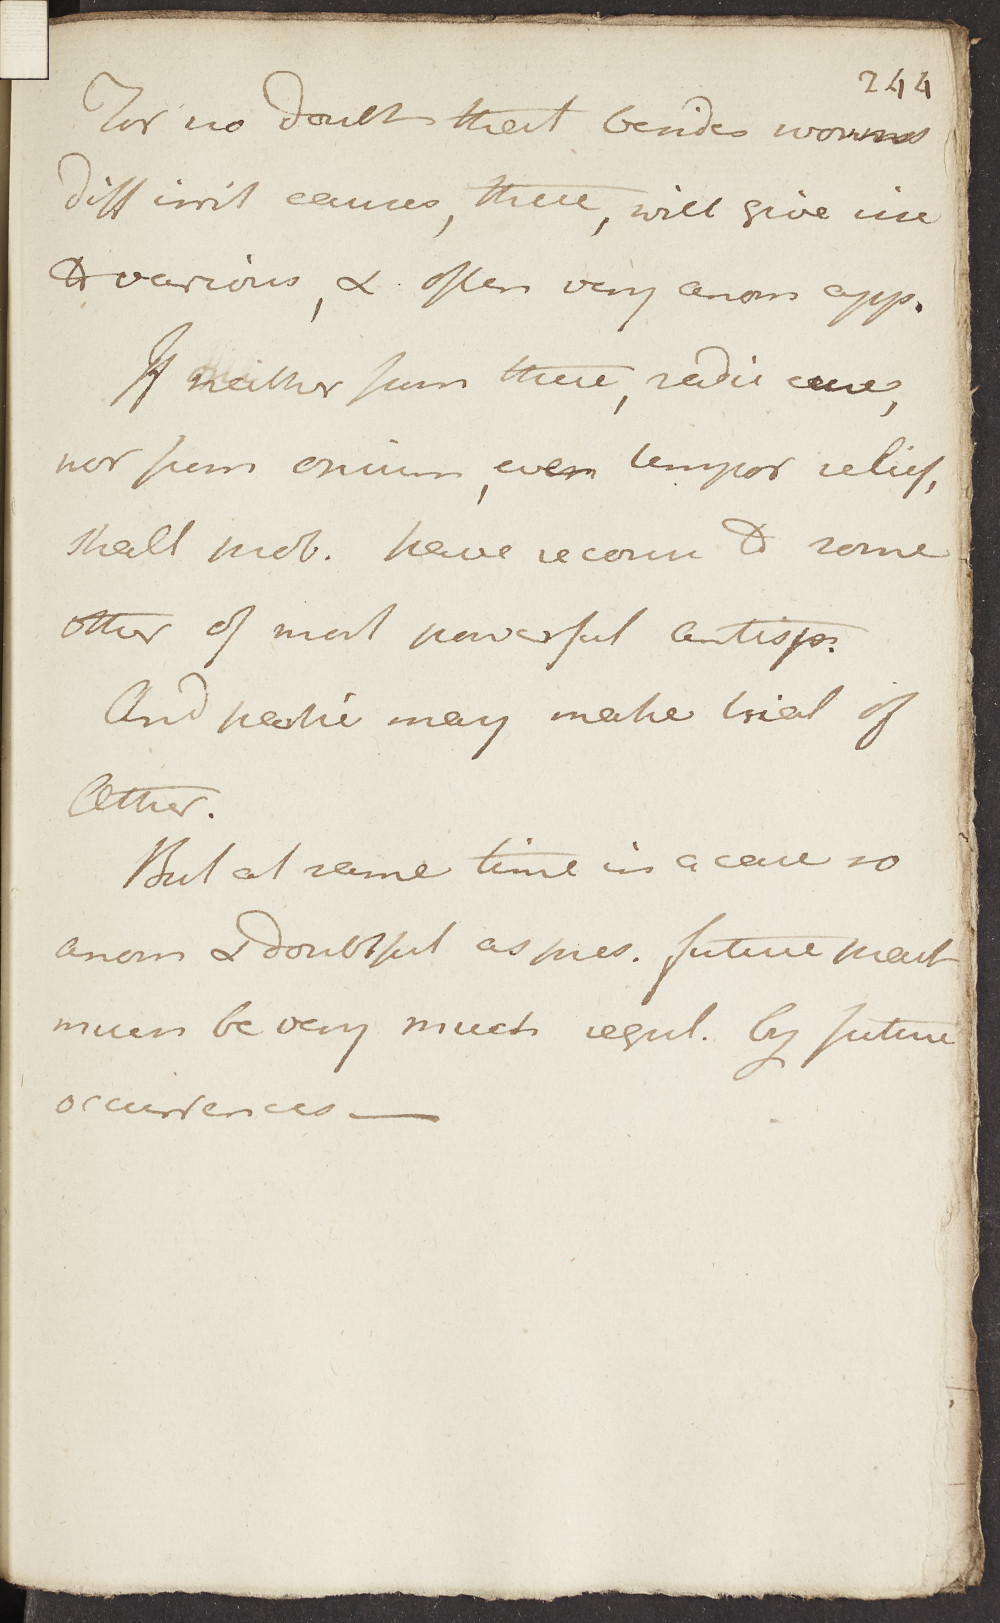 244
For no doubt that besides worms
diff irrit causes, there, will give rise
to various, & often very anom app.
If neither from these, radic cure,
nor from opium, even tempor relief,
shall prob. have recour to some
other of most powerful antisp.
And partic may make trial of
Æther.
But at same time in a case so
anom & doubtful as pres. future pract
must be very much regul. by future
occurrences —